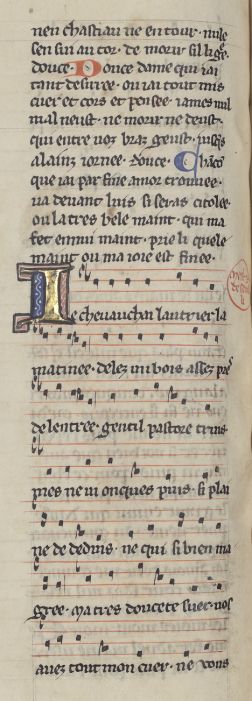 nen chastiau ne en tour. nule
sen sui au tor. de morir sil li gre
douce. Douce dame qui iai
tant desirree. ou iai tout mis
cuer et cors et pensee. iames nul
mal neust. ne morir ne deust.
qui entre voz braz geust. iusqes
a lainz iornee. douce. Chanco
que iai par fine amor trouuee.
va deuant luis si seras citolee
ou la tres bele maint. qui ma
fet ennui maint. prie li quele
maint ou ma ioie est finee.
Ie cheuauchai lautrier la
matinee. delez un bois assez pres
de lentree. gentil pastore truis
mes ne ui onques puis. si plai
ne de deduis. ne qui si bien ma
gree. Ma tres doucete suer. uos
auez tout mon cuer. ne vous